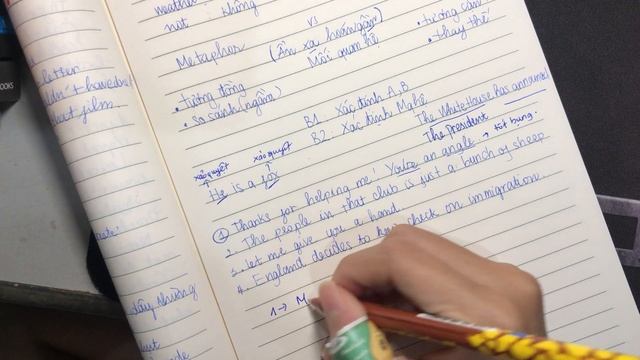 weather
not : không
letter
+ haved
that film.
Metaphor
vs
(Ẩn xạ hoán dụ)
Mối quan hệ
• tương cận
• thay thế
• tương đồng
• so sánh (ngầm)
B1: Xác định A, B
B2: Xác định Nghĩa
The White House has announced
The president
→ tốt bụng.
xảo quyệt
xảo quyệt
He is a fox
① Thanks for helping me! You're an angle
2. The people in that club is just a bunch of sheep
3. Let me give you a hand.
4. England decides to check on immigration.
1 → M
dấu